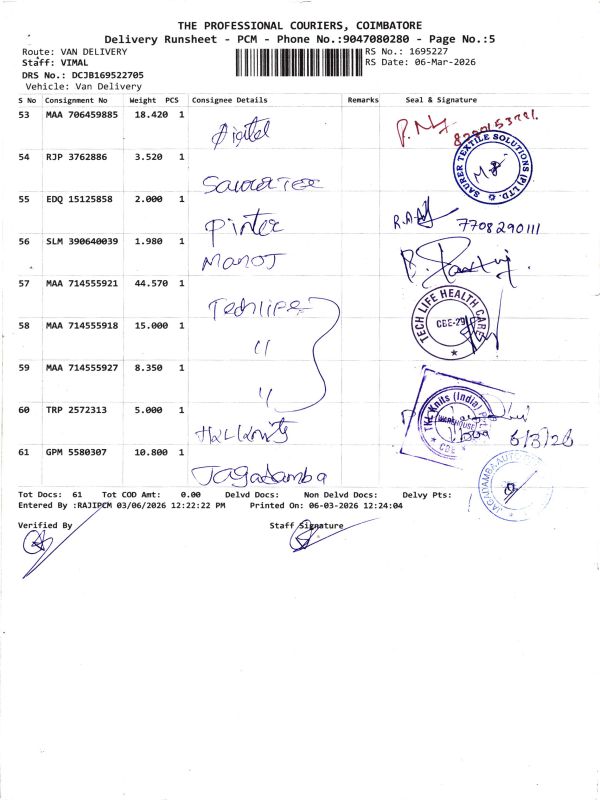 THE PROFESSIONAL COURIERS, COIMBATORE
Delivery Runsheet - PCM - Phone No.:9047080280 - Page No.:5
Route: VAN DELIVERY RS No.: 1695227
Staff: VIMAL RS Date: 06-Mar-2026
DRS No.: DCJB169522705
Vehicle: Van Delivery
S No Consignment No Weight PCS Consignee Details Remarks Seal & Signature
53 MAA 706459885 18.420 1 Digitel
54 RJP 3762886 3.520 1 Saurer Tex SAURER TEXTILE SOLUTIONS (P) LTD.
55 EDQ 15125858 2.000 1 Pinter 7708290111
56 SLM 390640039 1.980 1 Manoj
57 MAA 714555921 44.570 1 Techlife TECH LIFE HEALTH CARE CBE-29
58 MAA 714555918 15.000 1 "
59 MAA 714555927 8.350 1 "
60 TRP 2572313 5.000 1 TKL Knits (India) WAREHOUSE CBE 6/3/26
61 GPM 5580307 10.800 1 Jagadamba JAGADAMBA
Tot Docs: 61 Tot COD Amt: 0.00 Delvd Docs: Non Delvd Docs: Delvy Pts:
Entered By :RAJIPCM 03/06/2026 12:22:22 PM Printed On: 06-03-2026 12:24:04
Verified By Staff Signature